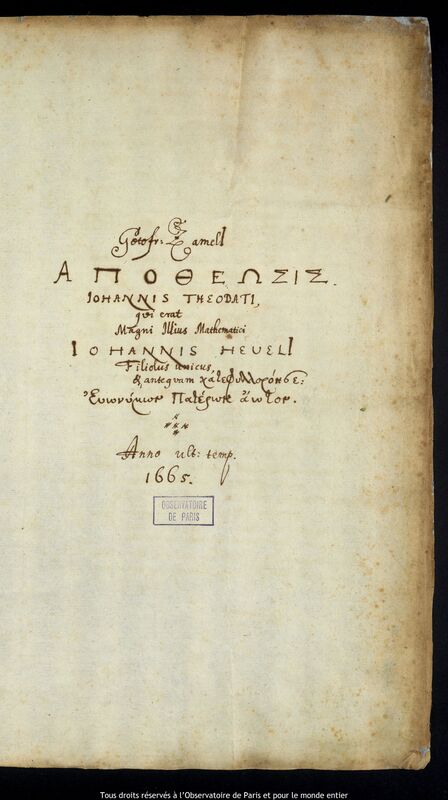 Gotofr: ZamelI
ΑΠΟΘΕΩΣΙΣ.
IOHANNIS THEODATI,
qui erat
Magni Illius Mathematici
IOHANNIS HEVELI
Filiolus unicus,
&, antequam
Anno ult: temp.
1665.
OBSERVATOIRE
DE PARIS
Tous droits réservés à l'Observatoire de Paris et pour le monde entier